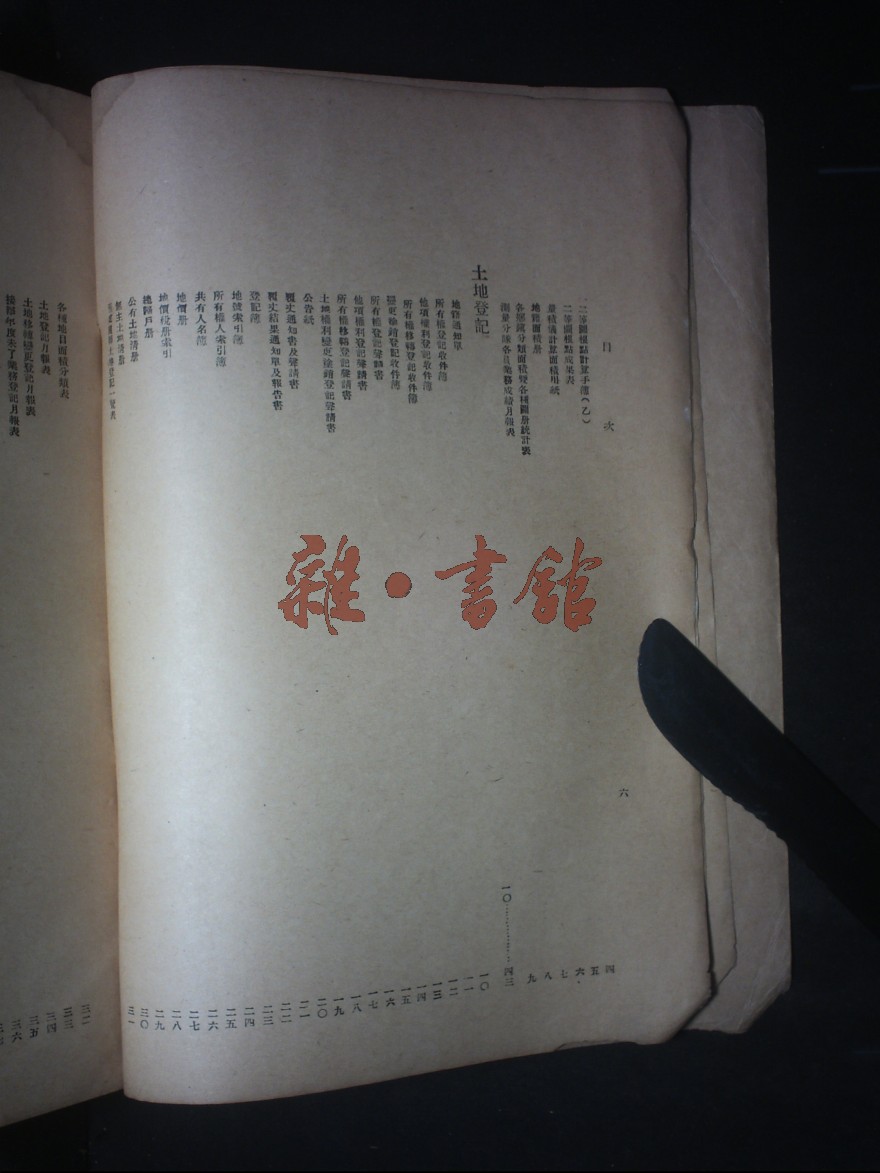 目次
六
二等圖根點計算手簿(乙) 四
二等圖根點成果表 五
量積儀計算面積用紙 六
地籍面積册 七
各鄉鎮分類面積暨各種圖册統計表 八
測量分隊各員業務成績月報表 九
土地登記 一〇………四三
地籍通知單 一〇
所有權登記收件簿 一一
他項權利登記收件簿 一二
所有權移轉登記收件簿 一三
變更塗銷登記收件簿 一四
所有權登記聲請書 一五
他項權利登記聲請書 一六
所有權移轉登記聲請書 一七
土地權利變更塗銷登記聲請書 一八
公告紙 一九
覆丈通知書及聲請書 二〇
覆丈結果通知單及報告書 二一
登記簿 二二
地號索引簿 二三
所有權人索引簿 二四
共有人名簿 二五
地價册 二六
地價稅册索引 二七
總歸戶册 二八
公有土地清册 二九
無主土地清册 三〇
土地登記一覽表 三一
各種地目面積分類表 三二
土地登記月報表 三三
土地移轉變更登記月報表 三四
年度未了業務登記月報表 三五
三六
雜·書館